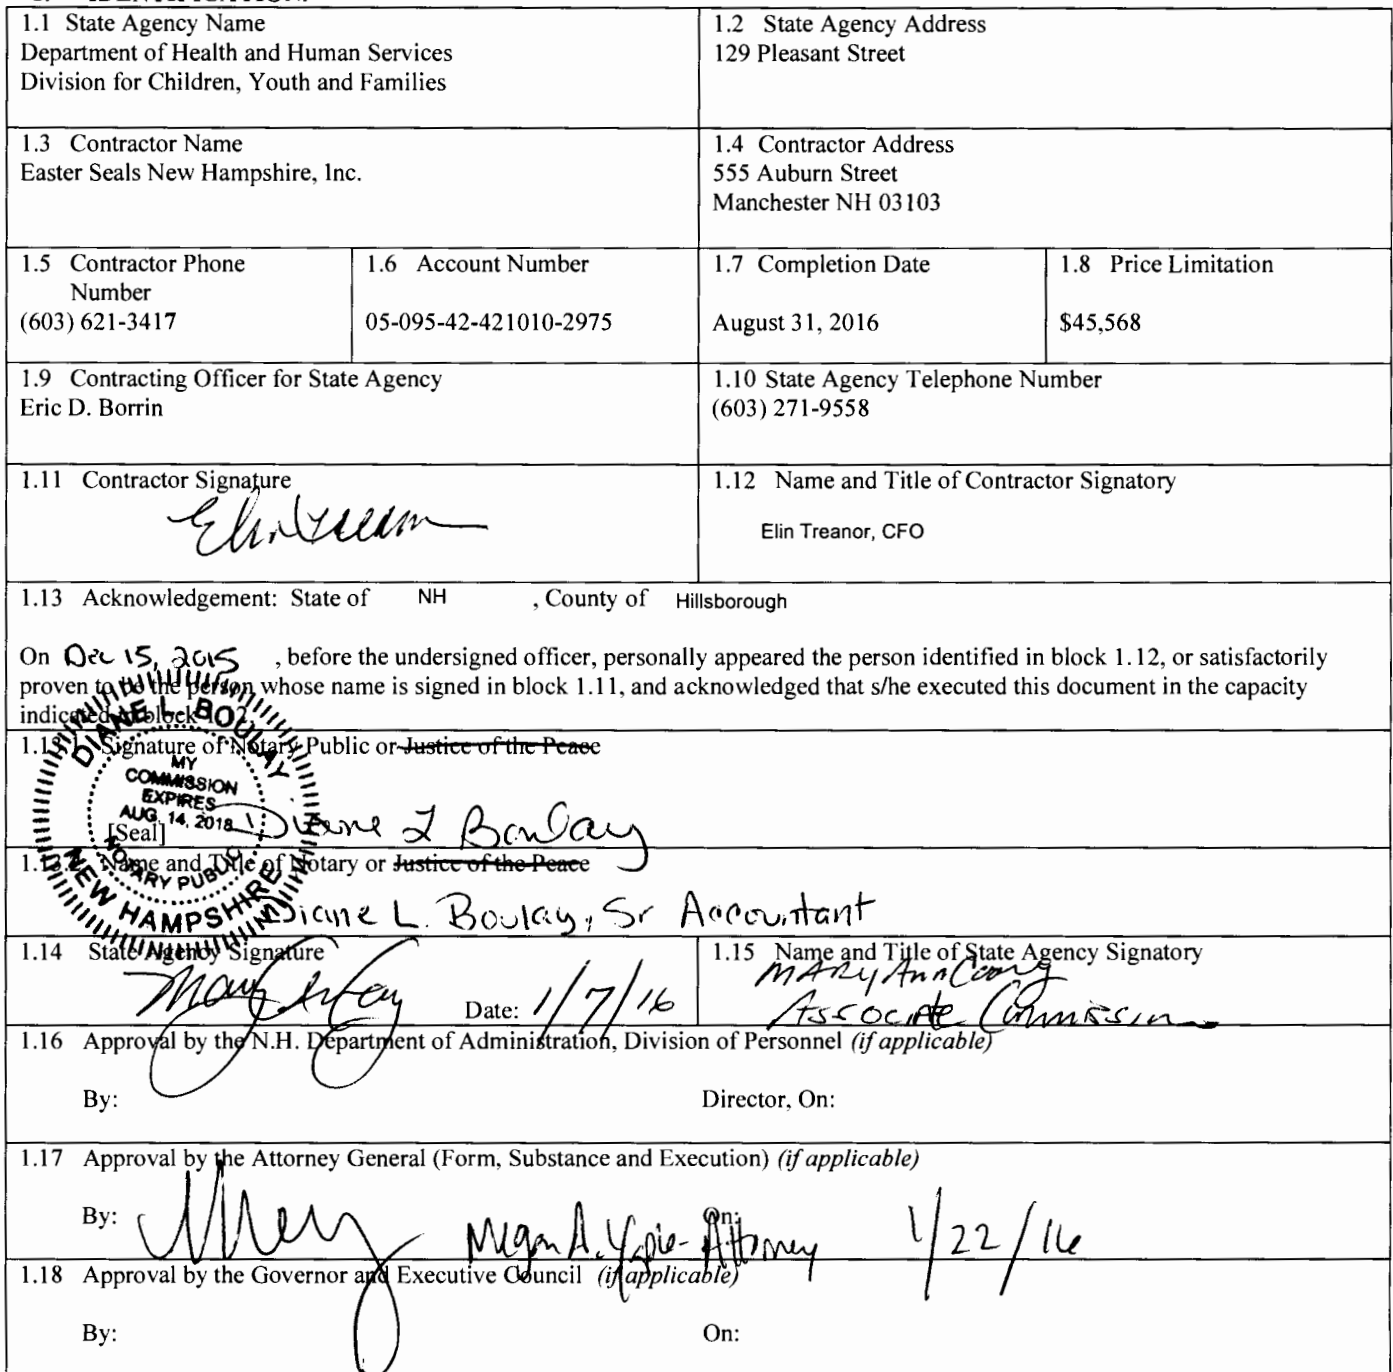 1.1 State Agency Name
Department of Health and Human Services
Division for Children, Youth and Families
1.2 State Agency Address
129 Pleasant Street
1.3 Contractor Name
Easter Seals New Hampshire, Inc.
1.4 Contractor Address
555 Auburn Street
Manchester NH 03103
1.5 Contractor Phone
Number
(603) 621-3417
1.6 Account Number
05-095-42-421010-2975
1.7 Completion Date
August 31, 2016
1.8 Price Limitation
$45,568
1.9 Contracting Officer for State Agency
Eric D. Borrin
1.10 State Agency Telephone Number
(603) 271-9558
1.11 Contractor Signature
Elin Treanor
1.12 Name and Title of Contractor Signatory
Elin Treanor, CFO
1.13 Acknowledgement: State of NH , County of Hillsborough
On Dec 15, 2015 , before the undersigned officer, personally appeared the person identified in block 1.12, or satisfactorily
proven to be the person whose name is signed in block 1.11, and acknowledged that s/he executed this document in the capacity
indicated in block 1.12.
1.13.1 Signature of Notary Public or Justice of the Peace
DIANE L. BOULAY
MY
COMMISSION
EXPIRES
AUG. 14, 2018
NOTARY PUBLIC
NEW HAMPSHIRE
[Seal]
Diane L Boulay
1.13.2 Name and Title of Notary or Justice of the Peace
Diane L. Boulay, Sr Accountant
1.14 State Agency Signature
Date: 1/7/16
1.15 Name and Title of State Agency Signatory
Mary Ann Cooney
Associate Commissioner
1.16 Approval by the N.H. Department of Administration, Division of Personnel (if applicable)
By: Director, On:
1.17 Approval by the Attorney General (Form, Substance and Execution) (if applicable)
By: Megan A. Attorney On: 1/22/16
1.18 Approval by the Governor and Executive Council (if applicable)
By: On: